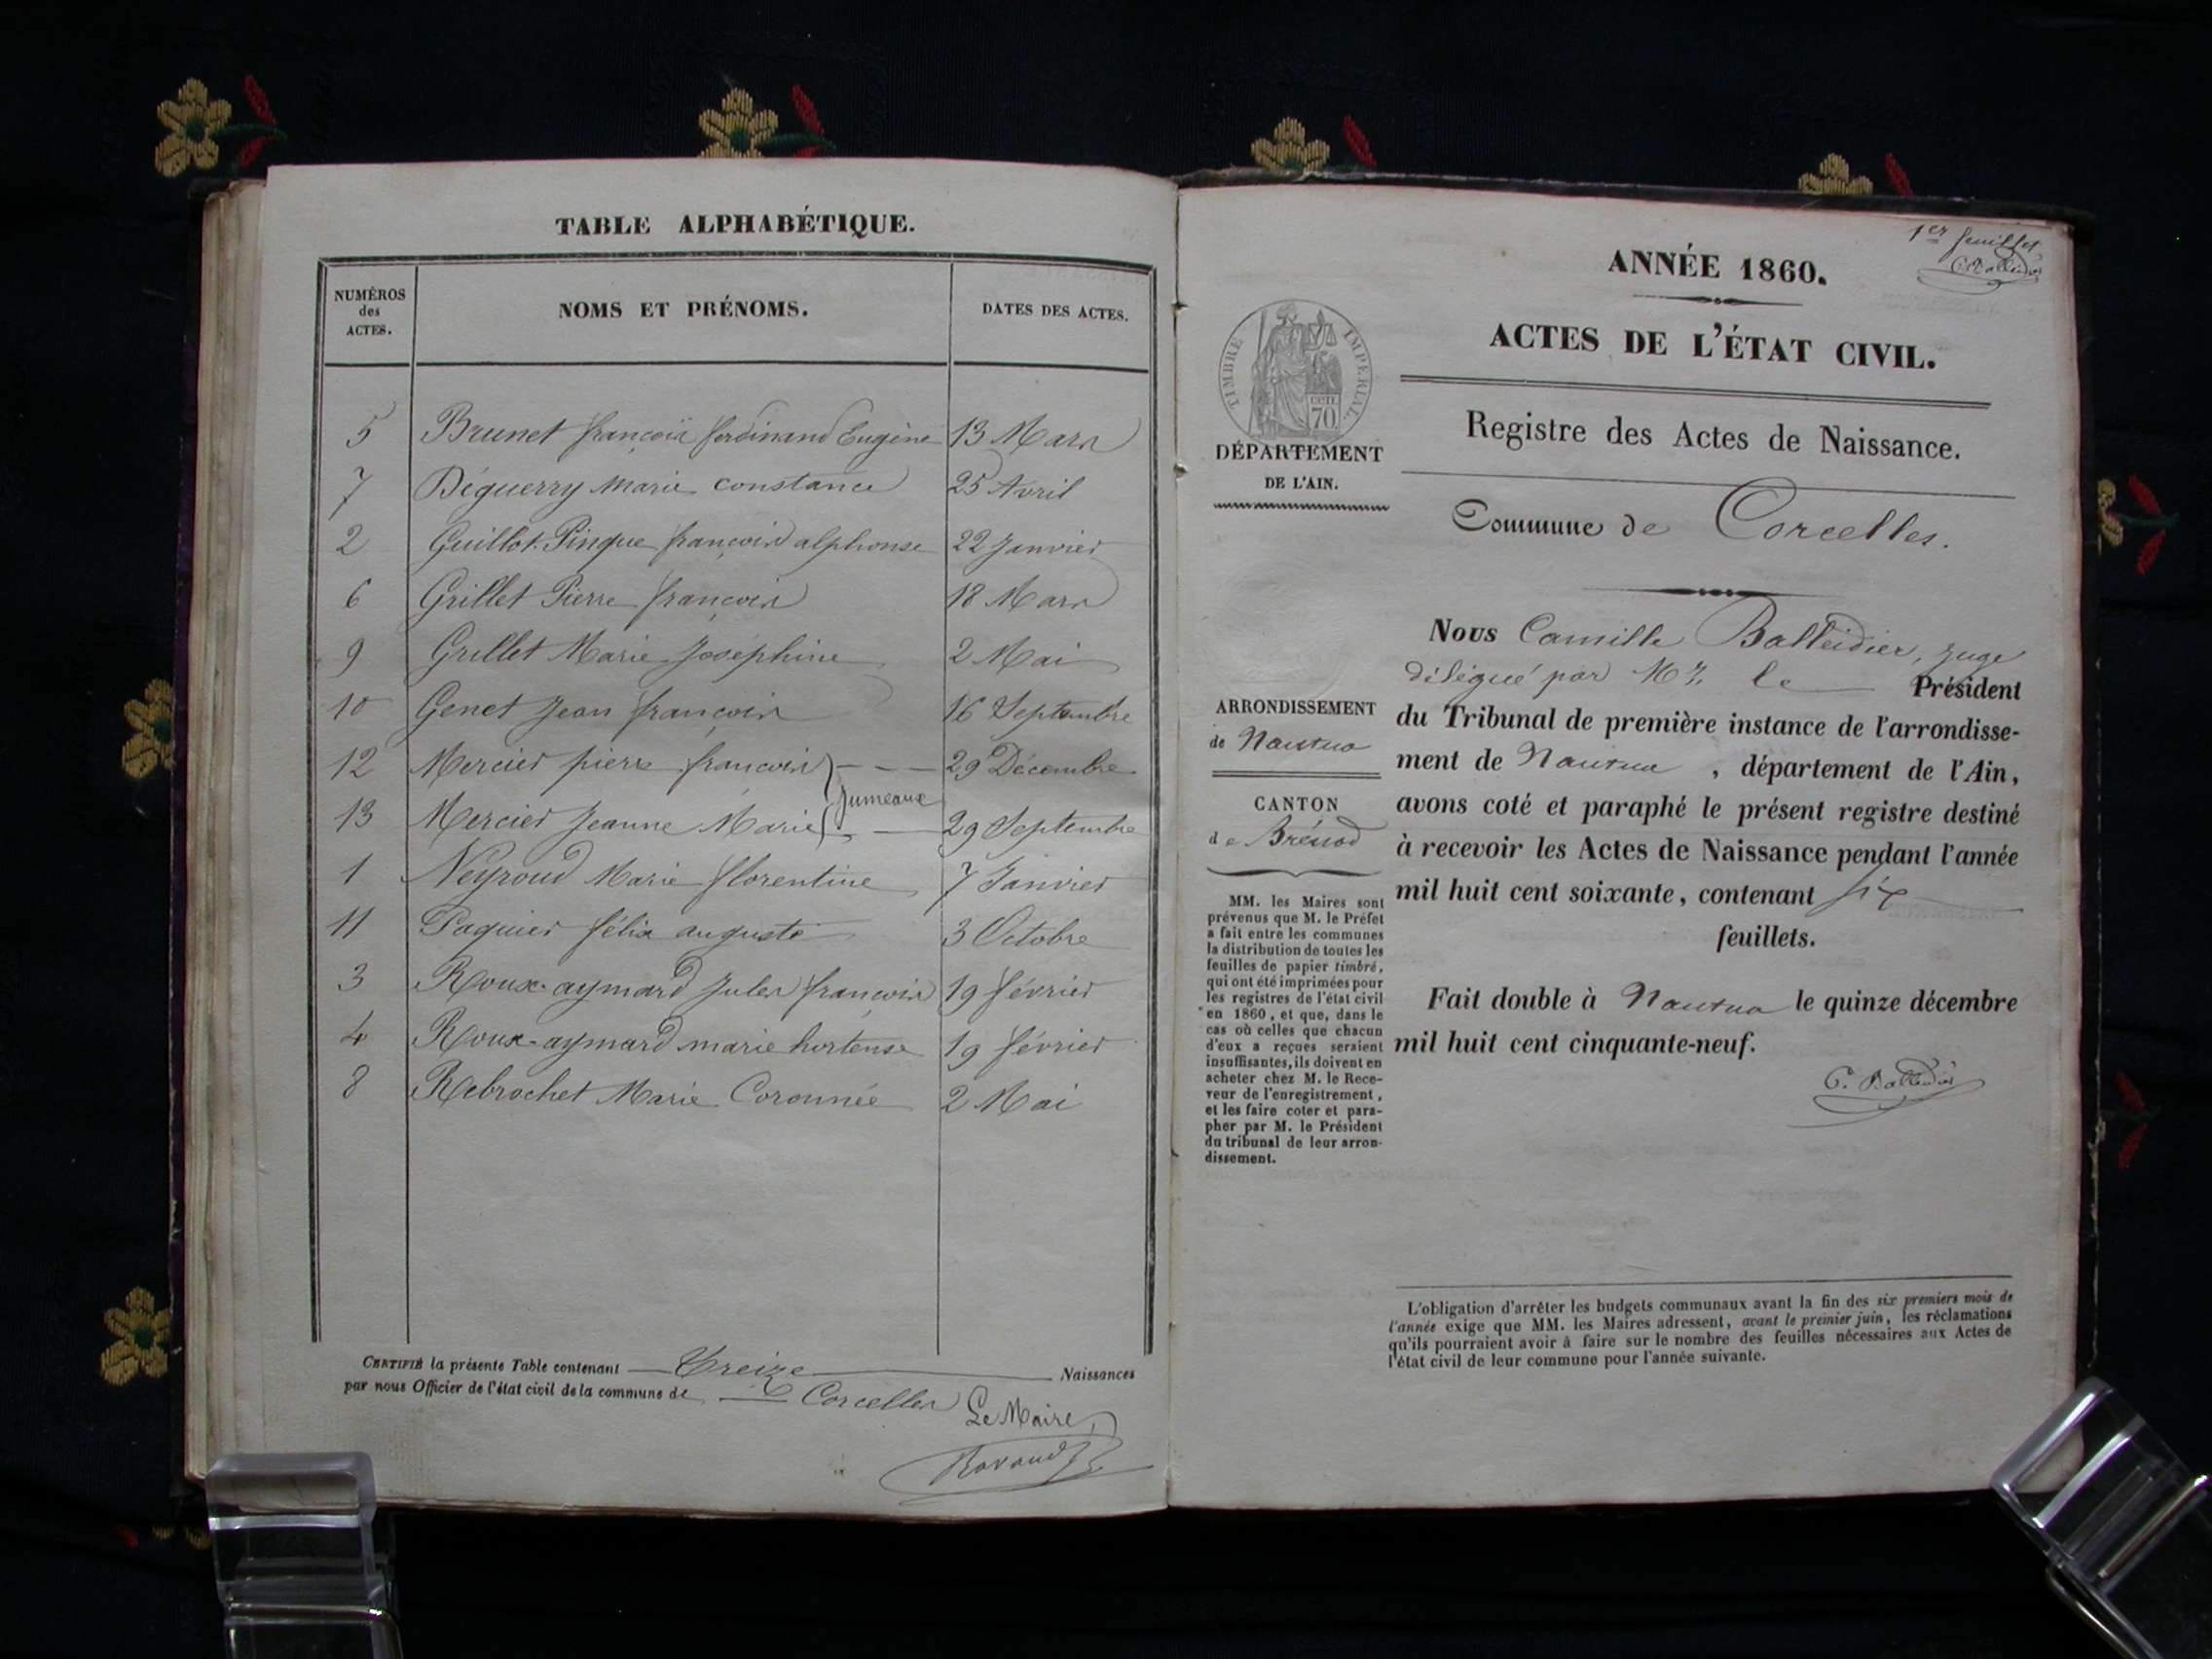 TABLE ALPHABÉTIQUE.
NUMÉROS des ACTES.
NOMS ET PRÉNOMS.
DATES DES ACTES.
5 Brunet françois ferdinand Eugène 13 Mars
7 Déguerry Marie constance 25 Avril
2 Guillot-Pingue françois alphonse 22 Janvier
6 Grillet Pierre françois 18 Mars
9 Grillet Marie Joséphine 2 Mai
10 Genet Jean françois 16 Septembre
12 Mercier pierre françois 29 Décembre
jumeaux
13 Mercier Jeanne Marie 29 Septembre
1 Neyroud Marie florentine 7 Janvier
11 Paquier félix auguste 3 Octobre
3 Roux-aymard Jules françois 19 février
4 Roux-aymard marie hortense 19 février
8 Rebrochet Marie Coronnée 2 Mai
CERTIFIÉ la présente Table contenant Treize Naissances
par nous Officier de l'état civil de la commune de Corcelles
Le Maire
Ravaud
1er feuillet
C. Balleidier
ANNÉE 1860.
ACTES DE L'ÉTAT CIVIL.
TIMBRE IMPÉRIAL
CEN.
70
Registre des Actes de Naissance.
DÉPARTEMENT
DE L'AIN.
Commune de Corcelles.
ARRONDISSEMENT
de Nantua
CANTON
de Brénod
MM. les Maires sont
prévenus que M. le Préfet
a fait entre les communes
la distribution de toutes les
feuilles de papier timbré,
qui ont été imprimées pour
les registres de l'état civil
en 1860, et que, dans le
cas où celles que chacun
d'eux a reçues seraient
insuffisantes, ils doivent en
acheter chez M. le Rece-
veur de l'enregistrement,
et les faire coter et para-
pher par M. le Président
du tribunal de leur arron-
dissement.
Nous Camille Balleidier, juge
délégué par Mr. le Président
du Tribunal de première instance de l'arrondisse-
ment de Nantua, département de l'Ain,
avons coté et paraphé le présent registre destiné
à recevoir les Actes de Naissance pendant l'année
mil huit cent soixante, contenant six
feuillets.
Fait double à Nantua le quinze décembre
mil huit cent cinquante-neuf.
C. Balleidier
L'obligation d'arrêter les budgets communaux avant la fin des six premiers mois de
l'année exige que MM. les Maires adressent, avant le premier juin, les réclamations
qu'ils pourraient avoir à faire sur le nombre des feuilles nécessaires aux Actes de
l'état civil de leur commune pour l'année suivante.